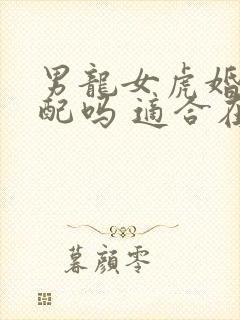 男龍女虎婚
配吗 適合在
暮顔零